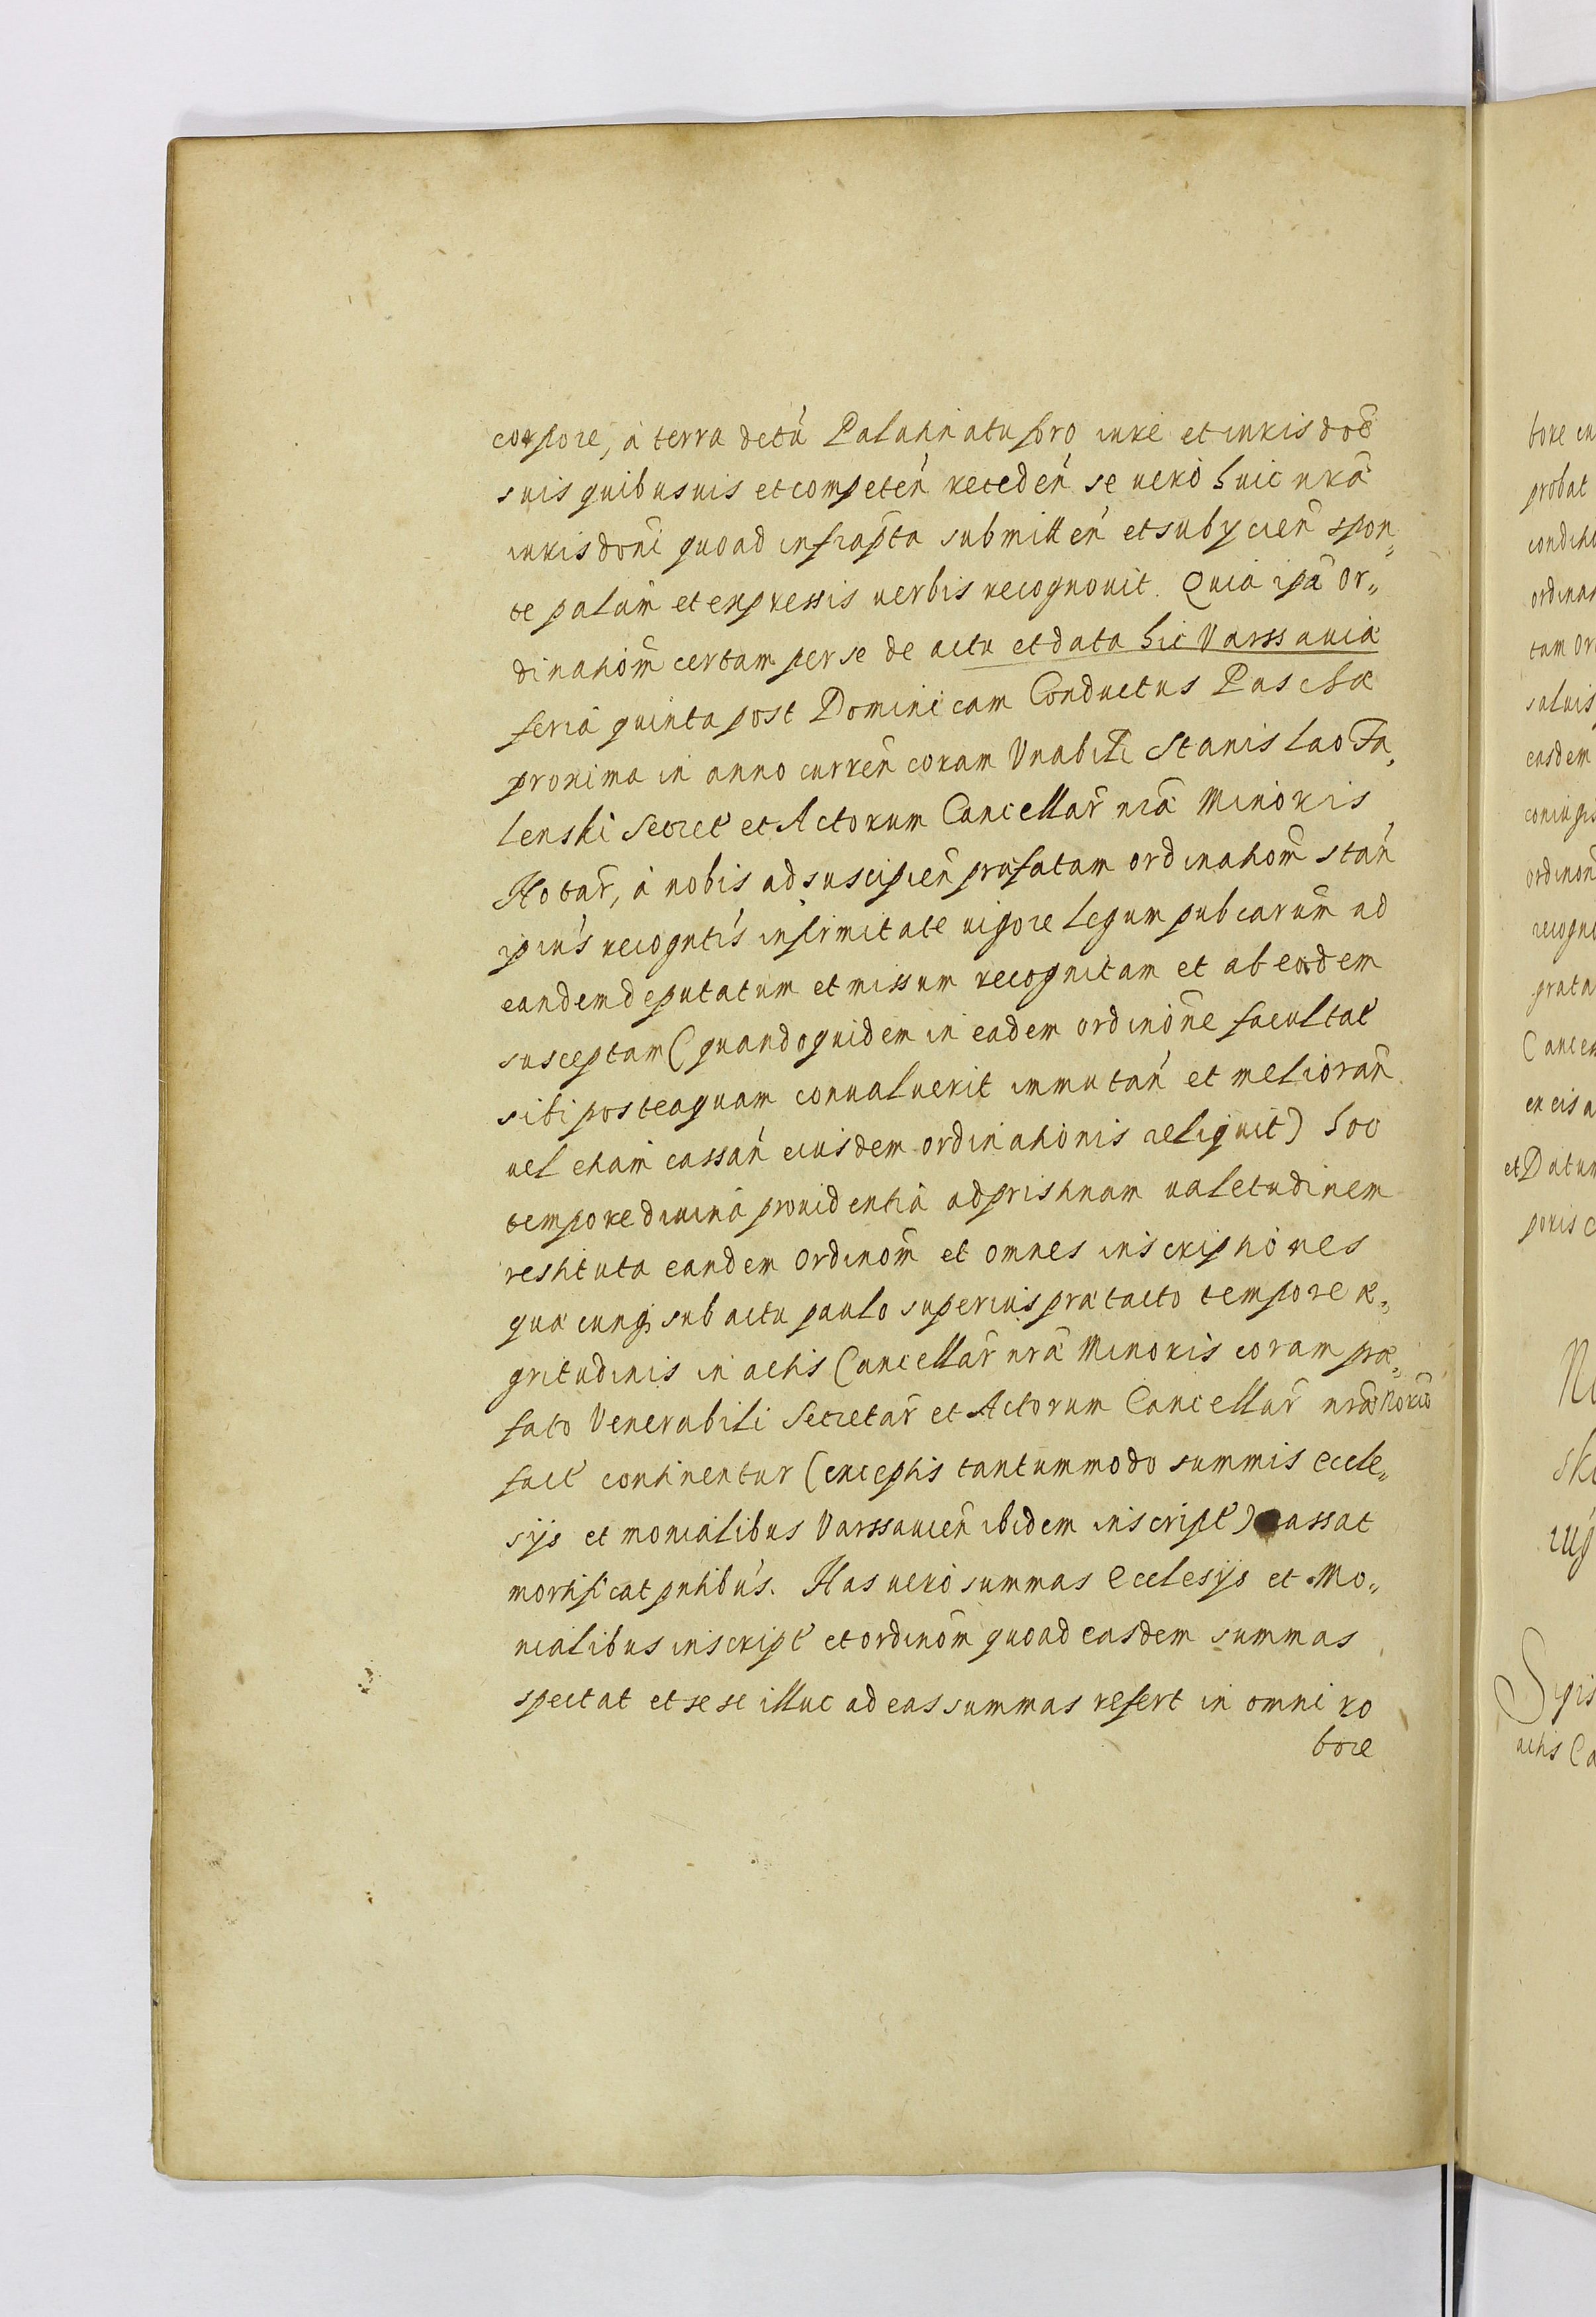 corpore, à terra dctũ Palatinatu foro iure et iurisdoẽ
suis quibusuis et competeñ recedeñ se uerò huic nrã
iurisdoni quoad infrapta submitteñ et subycieñ spon„
te palam et expressis uerbis recognouit. Quia ipã or„
dinatiom̃ certam per se de actu et data hic Varssauiæ
feria quinta post Dominicam Conductus Paschæ
proxima in anno curreñ coram Vnabili Stanislao Za„
lenski Secret et Actorum Cancellar̃ nrã Minoris
Notar̃, à nobis ad suscipieñ præfatam ordinatiom̃ stañ
ipius recogntis infirmitate uigore legum pubcarum ad
eandem deputatum et missum recognitam et ab eodem
susceptam (quandoquidem in eadem ordinõne facultat
sibi posteaquam conualuerit immutañ et meliorañ
uel etiam cassañ eiusdem ordinationis reliquit) hoc
tempore diuina prouidentiâ ad pristinam ualetudinem
restituta eandem ordinom̃ et omnes inscriptiones
quæcunq; sub actu paulo superius prætacto tempore æ„
gritudinis in actis Cancellar̃ nrã Minoris coram præ„
fato Venerabili Secretar̃ et Actorum Cancellar̃ nrã Norio
fact continentur (exceptis tantummodo summis eccle„
sijs et monialibus Varssauieñ ibidem inscript) cassat
mortificat pntibus. Has uerò summas Ecclesijs et Mo„
nialibus inscript et ordinom̃ quoad easdem summas
spectat et se se illuc ad eas summas refert in omni ro
bore
bore
probat
ordinar
saluis
easdem
coniugis
grata
et Datum